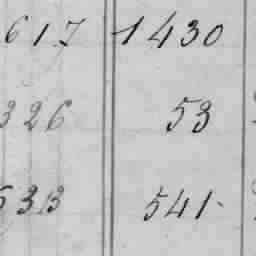 617 1430
326 53
533 541